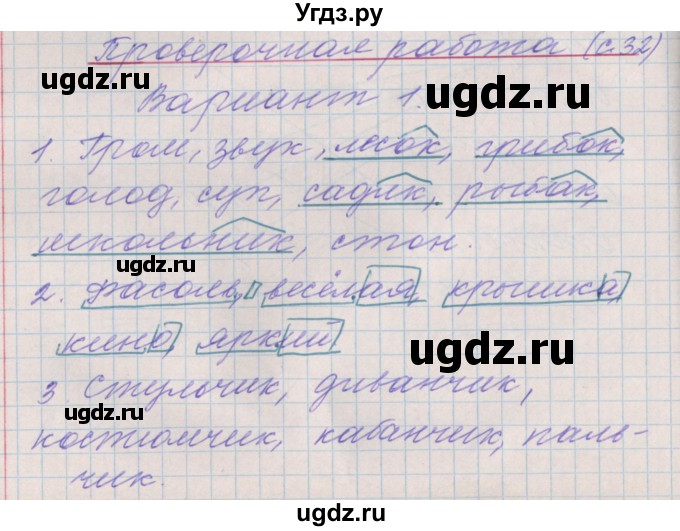 Угдз.ру
Проверочная работа (с.32)
ugdz.ru
Вариант 1.
ugdz.ru
1. Гром, звук, лесок, грибок,
голод, суп, садик, рыбак,
школьник, стон.
ugdz.ru
2. фасоль, весёлая, крышка,
кино, яркий
ugdz.ru
3 Стульчик, диванчик,
ugdz.ru
костюмчик, кабанчик, паль-
чик.
ugdz.ru
ugdz.ru